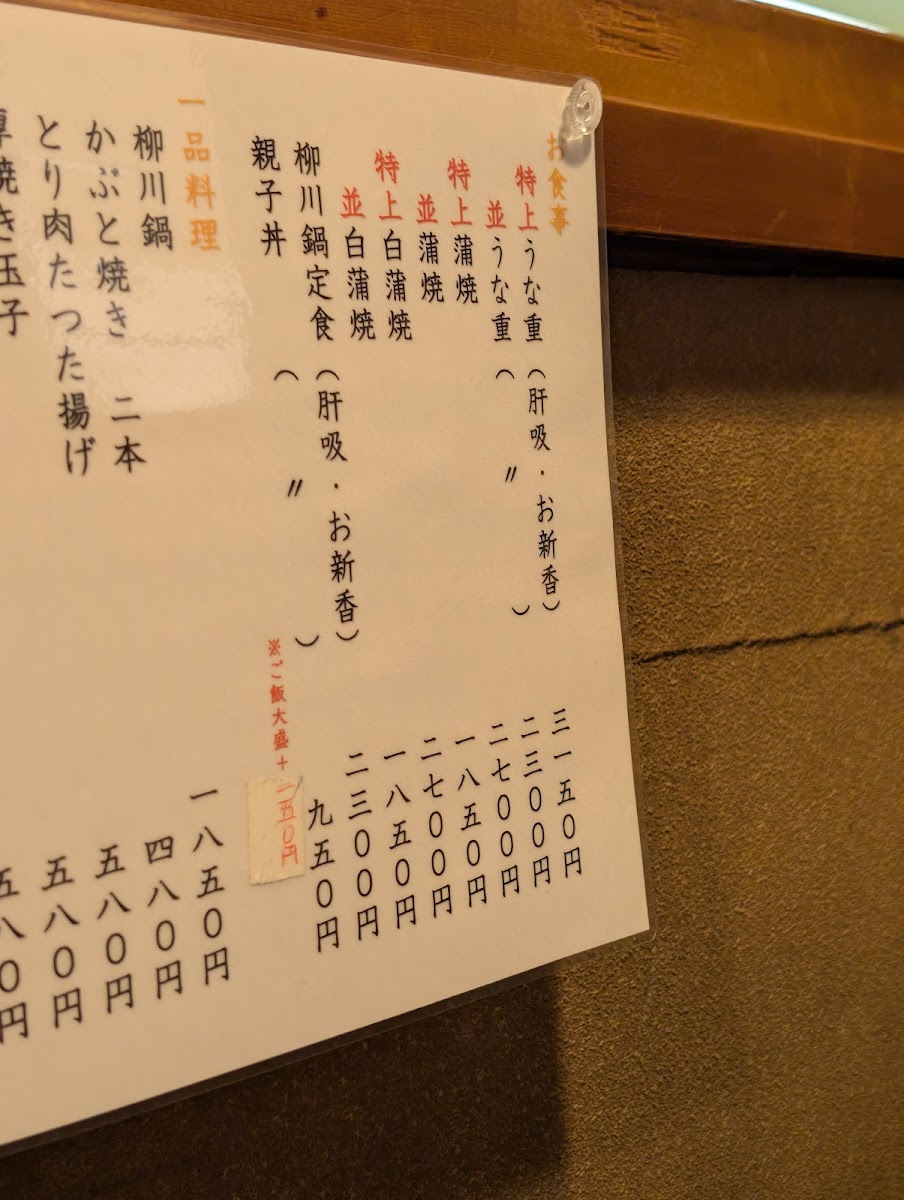 お食事
特上うな重（肝吸・お新香） 三一五〇円
並うな重（〃） 二三〇〇円
特上蒲焼 二七〇〇円
並蒲焼 一八五〇円
特上白蒲焼 二七〇〇円
並白蒲焼 一八五〇円
柳川鍋定食（肝吸・お新香） 二三〇〇円
親子丼（〃） 九五〇円
※ご飯大盛＋二五〇円
一品料理
柳川鍋 一八五〇円
かぶと焼き 二本 四八〇円
とり肉たつた揚げ 五八〇円
厚焼き玉子 五八〇円
五八〇円